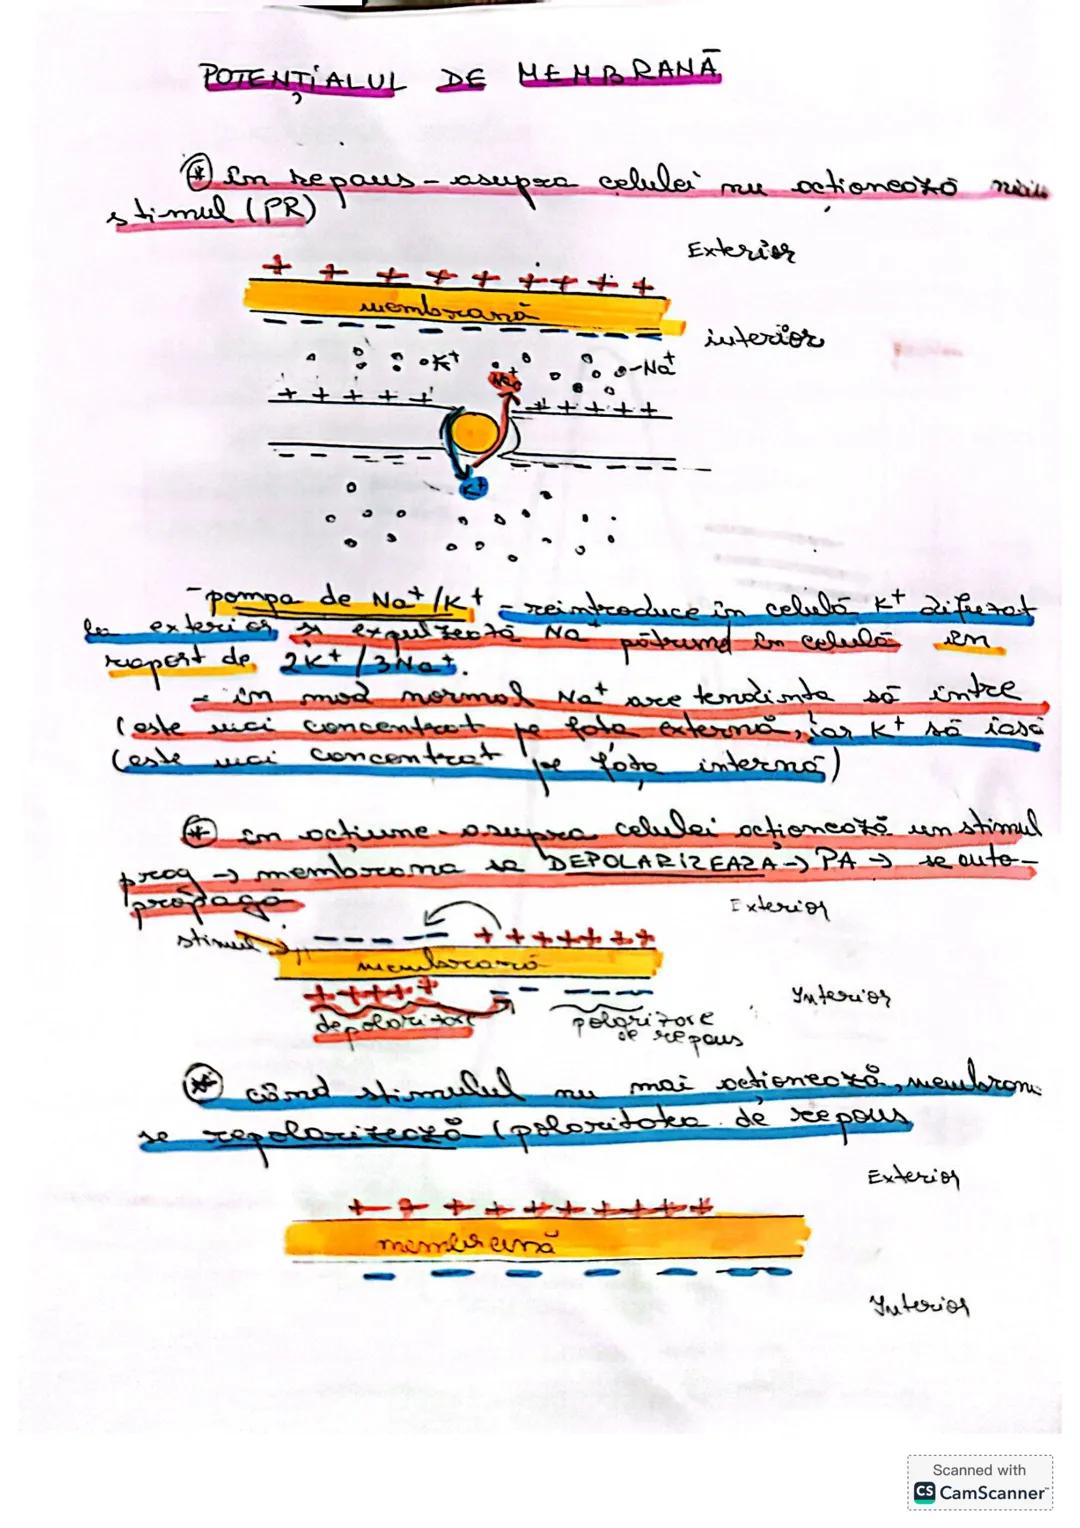 POTENȚIALUL DE MEMBRANĂ
în repaus - asupra celulei nu acționează niciun
stimul (PR)
Exterior
+ + + + + + + + +
membrană
interior
K⁺
Na⁺
Na⁺
+ + + + +
+ + + + +
K⁺
- pompa de Na⁺/K⁺ - reintroduce în celulă K⁺ difuzat
la exterior și expulzează Na⁺ pătruns în celulă în
raport de 2K⁺/3Na⁺.
- în mod normal Na⁺ are tendința să intre
(este mai concentrat pe fața externă, iar K⁺ să iasă
(este mai concentrat pe fața internă)
în acțiune - asupra celulei acționează un stimul
prag → membrana se DEPOLARIZEAZĂ → PA → se auto-
propagă
Exterior
stimul
- - - - - + + + + + + + +
membrană
+ + + + +
Interior
depolarizare
polarizare
de repaus
când stimulul nu mai acționează, membrana
se repolarizează (polaritatea de repaus
Exterior
+ + + + + + + + + +
membrană
Interior
Scanned with
CS CamScanner